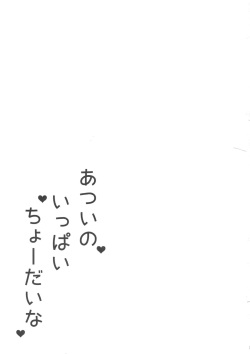 あついの♥
いっぱい♥
ちょーだいな♥